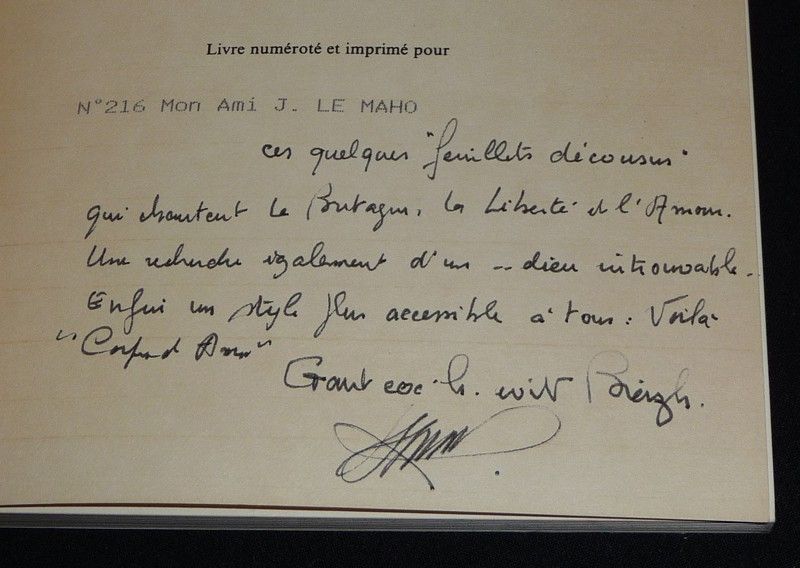 Livre numéroté et imprimé pour
N°216 Mon Ami J. LE MAHO
ces quelques "feuillets décousus"
qui chantent la Bretagne, la Liberté et l'Amour.
Une recherche également d'un -- dieu introuvable.
Enfin un style plus accessible à tous : Voilà
Breizh.